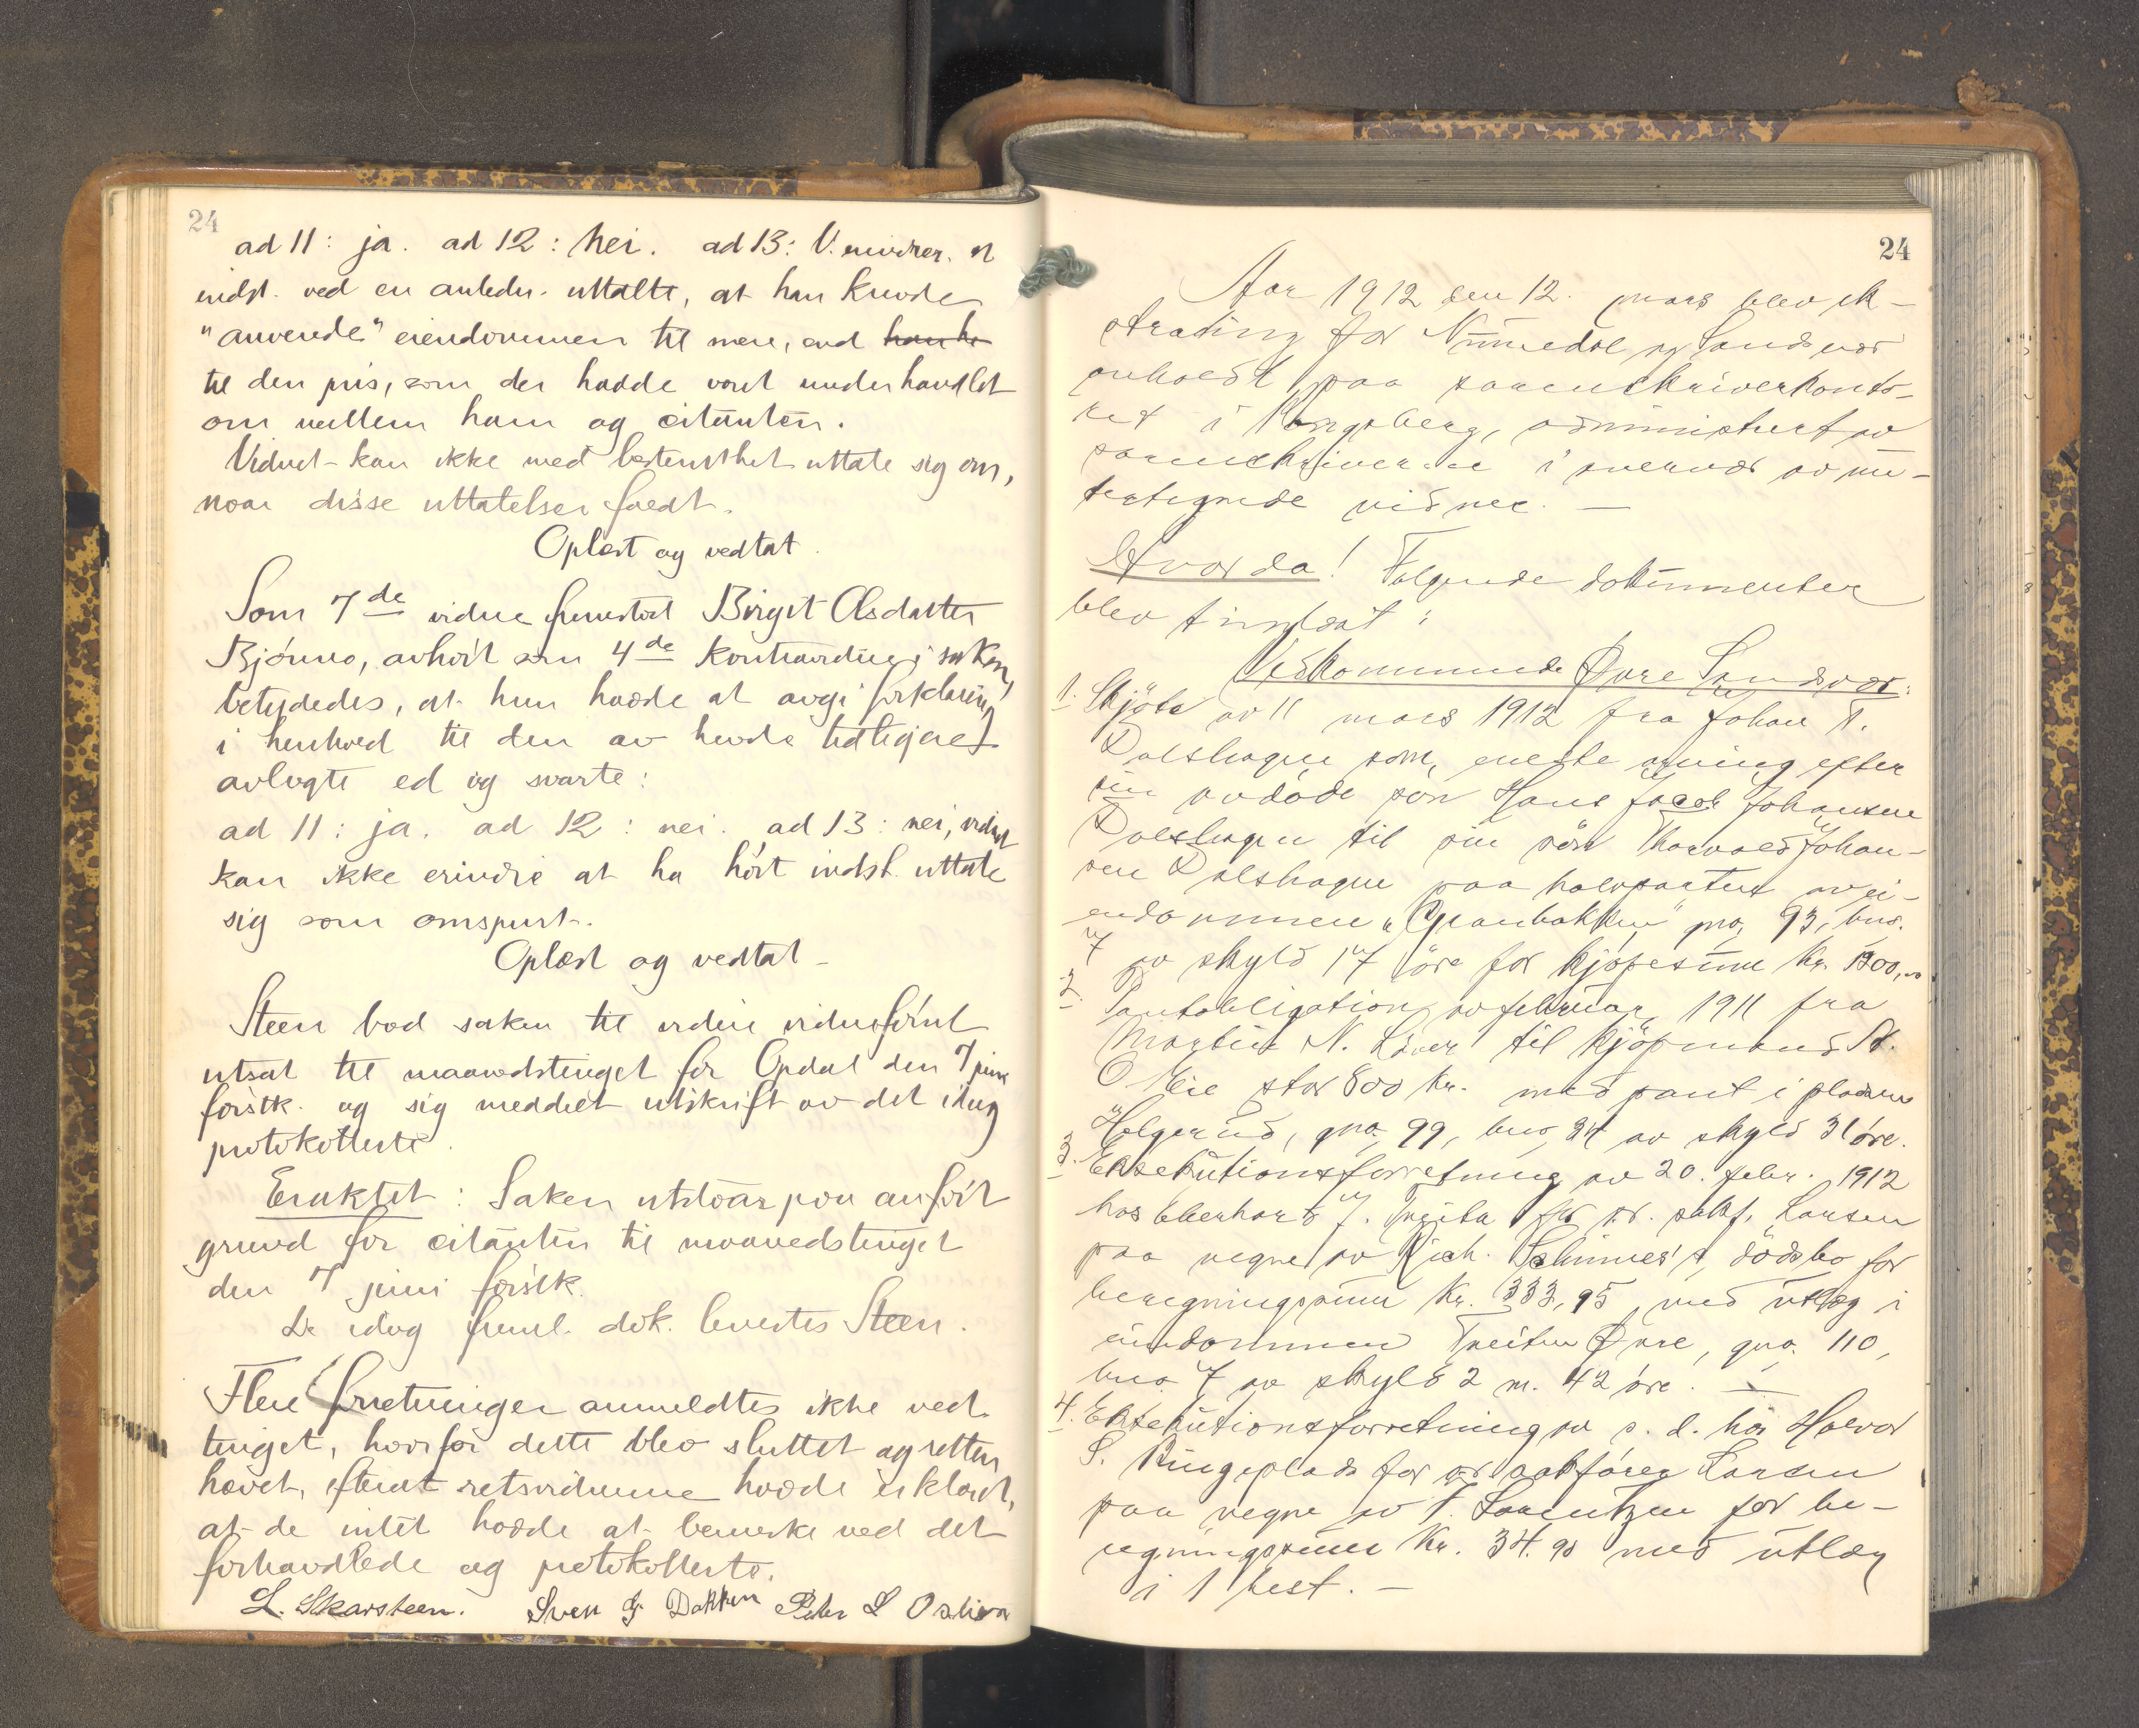 24
ad 11: ja. ad 12: nei. ad 13: V. erindrer, at
indst. ved en anledn. uttalte, at han kunde
"anvende" eiendommen til mere, end han ha
til den pris, som der hadde vært underhandlet
om mellem ham og citanten.
Vidnet kan ikke med bestemthet uttale sig om,
naar disse uttalelser faldt.
Oplæst og vedtat.
Som 7de vidne fremstod Birgit Olsdatter
Bjönno, avhört som 4de kontravidne i saken,
betydedes, at hun hadde at avgi forklaring
i henhold til den av hende tidligere
avlagte ed og svarte:
ad 11: ja. ad 12: nei. ad 13: nei, vidnet
kan ikke erindre at ha hört indst. uttale
sig som omspurt.
Oplæst og vedtat
Steen bad saken til videre vidneförsel
utsat til maanedstinget for Opdal den 7 juni
förstk. og sig meddelt utskrift av det idag
protokollerte.
Eraktet: Saken utstaar paa anfört
grund for citanten til maanedstinget
den 7 juni förstk.
De idag freml. dok. levertes Steen.
Flere forretninger anmeldtes ikke ved
tinget, hvorfor dette blev sluttet og retten
hævet, efterat retsvidnene hadde erklært,
at de intet hadde at bemerke ved det
forhandlede og protokollerte.
L. Skarsteen. Sven G Dokken Peter L
24
Aar 1912 den 12. mars blev ek-
strating for Numedal og Sandsvær
avholdt paa sorenskriverkonto-
ret i Kongsberg, administrert av
sorenskriveren i overvær av un-
tertegnede vidner. —
Hvorda! Følgende dokumenter
blev tinglæst:
Vedkommende Øvre Sandsvær:
1. Skjöte av 11 mars 1912 fra Johan T.
Dalshagen som eneste arving efter
sin avdöde sön Hans Jacob Johansen
Dalshagen til sin sön Thorvald Johan-
sen Dalshagen paa halvparten av ei-
endommen "Granbakken" gno. 93, bno.
7 av skyld 17 öre for kjöpesum kr. 1200,00
2. Pantobligation av februar 1911 fra
Martin N. Löver til kjöpmand St.
O Mæie stor 800 kr. med pant i pladsen
Helgerud, gno. 99, bno 24 av skyld 31 öre.
3. Eksekutionsforretning av 20. febr. 1912
hos Eberhard J. Tveita for o.r. sakf. Larsen
paa vegne av Rich. Schinnes's dödsbo for
beregningssum kr. 333,95 med utlæg i
eiendommen Tveiten Øvre, gno. 110,
bno. 7 av skyld 2 m. 42 öre. —
4. Eksekutionsforretning av s. d. hos Halvor
S. Ringsplads for o.r. sakförer Larsen
paa vegne av T. Lauentzen for be-
regningssum kr. 34.90 med utlæg
i 1 hest. —